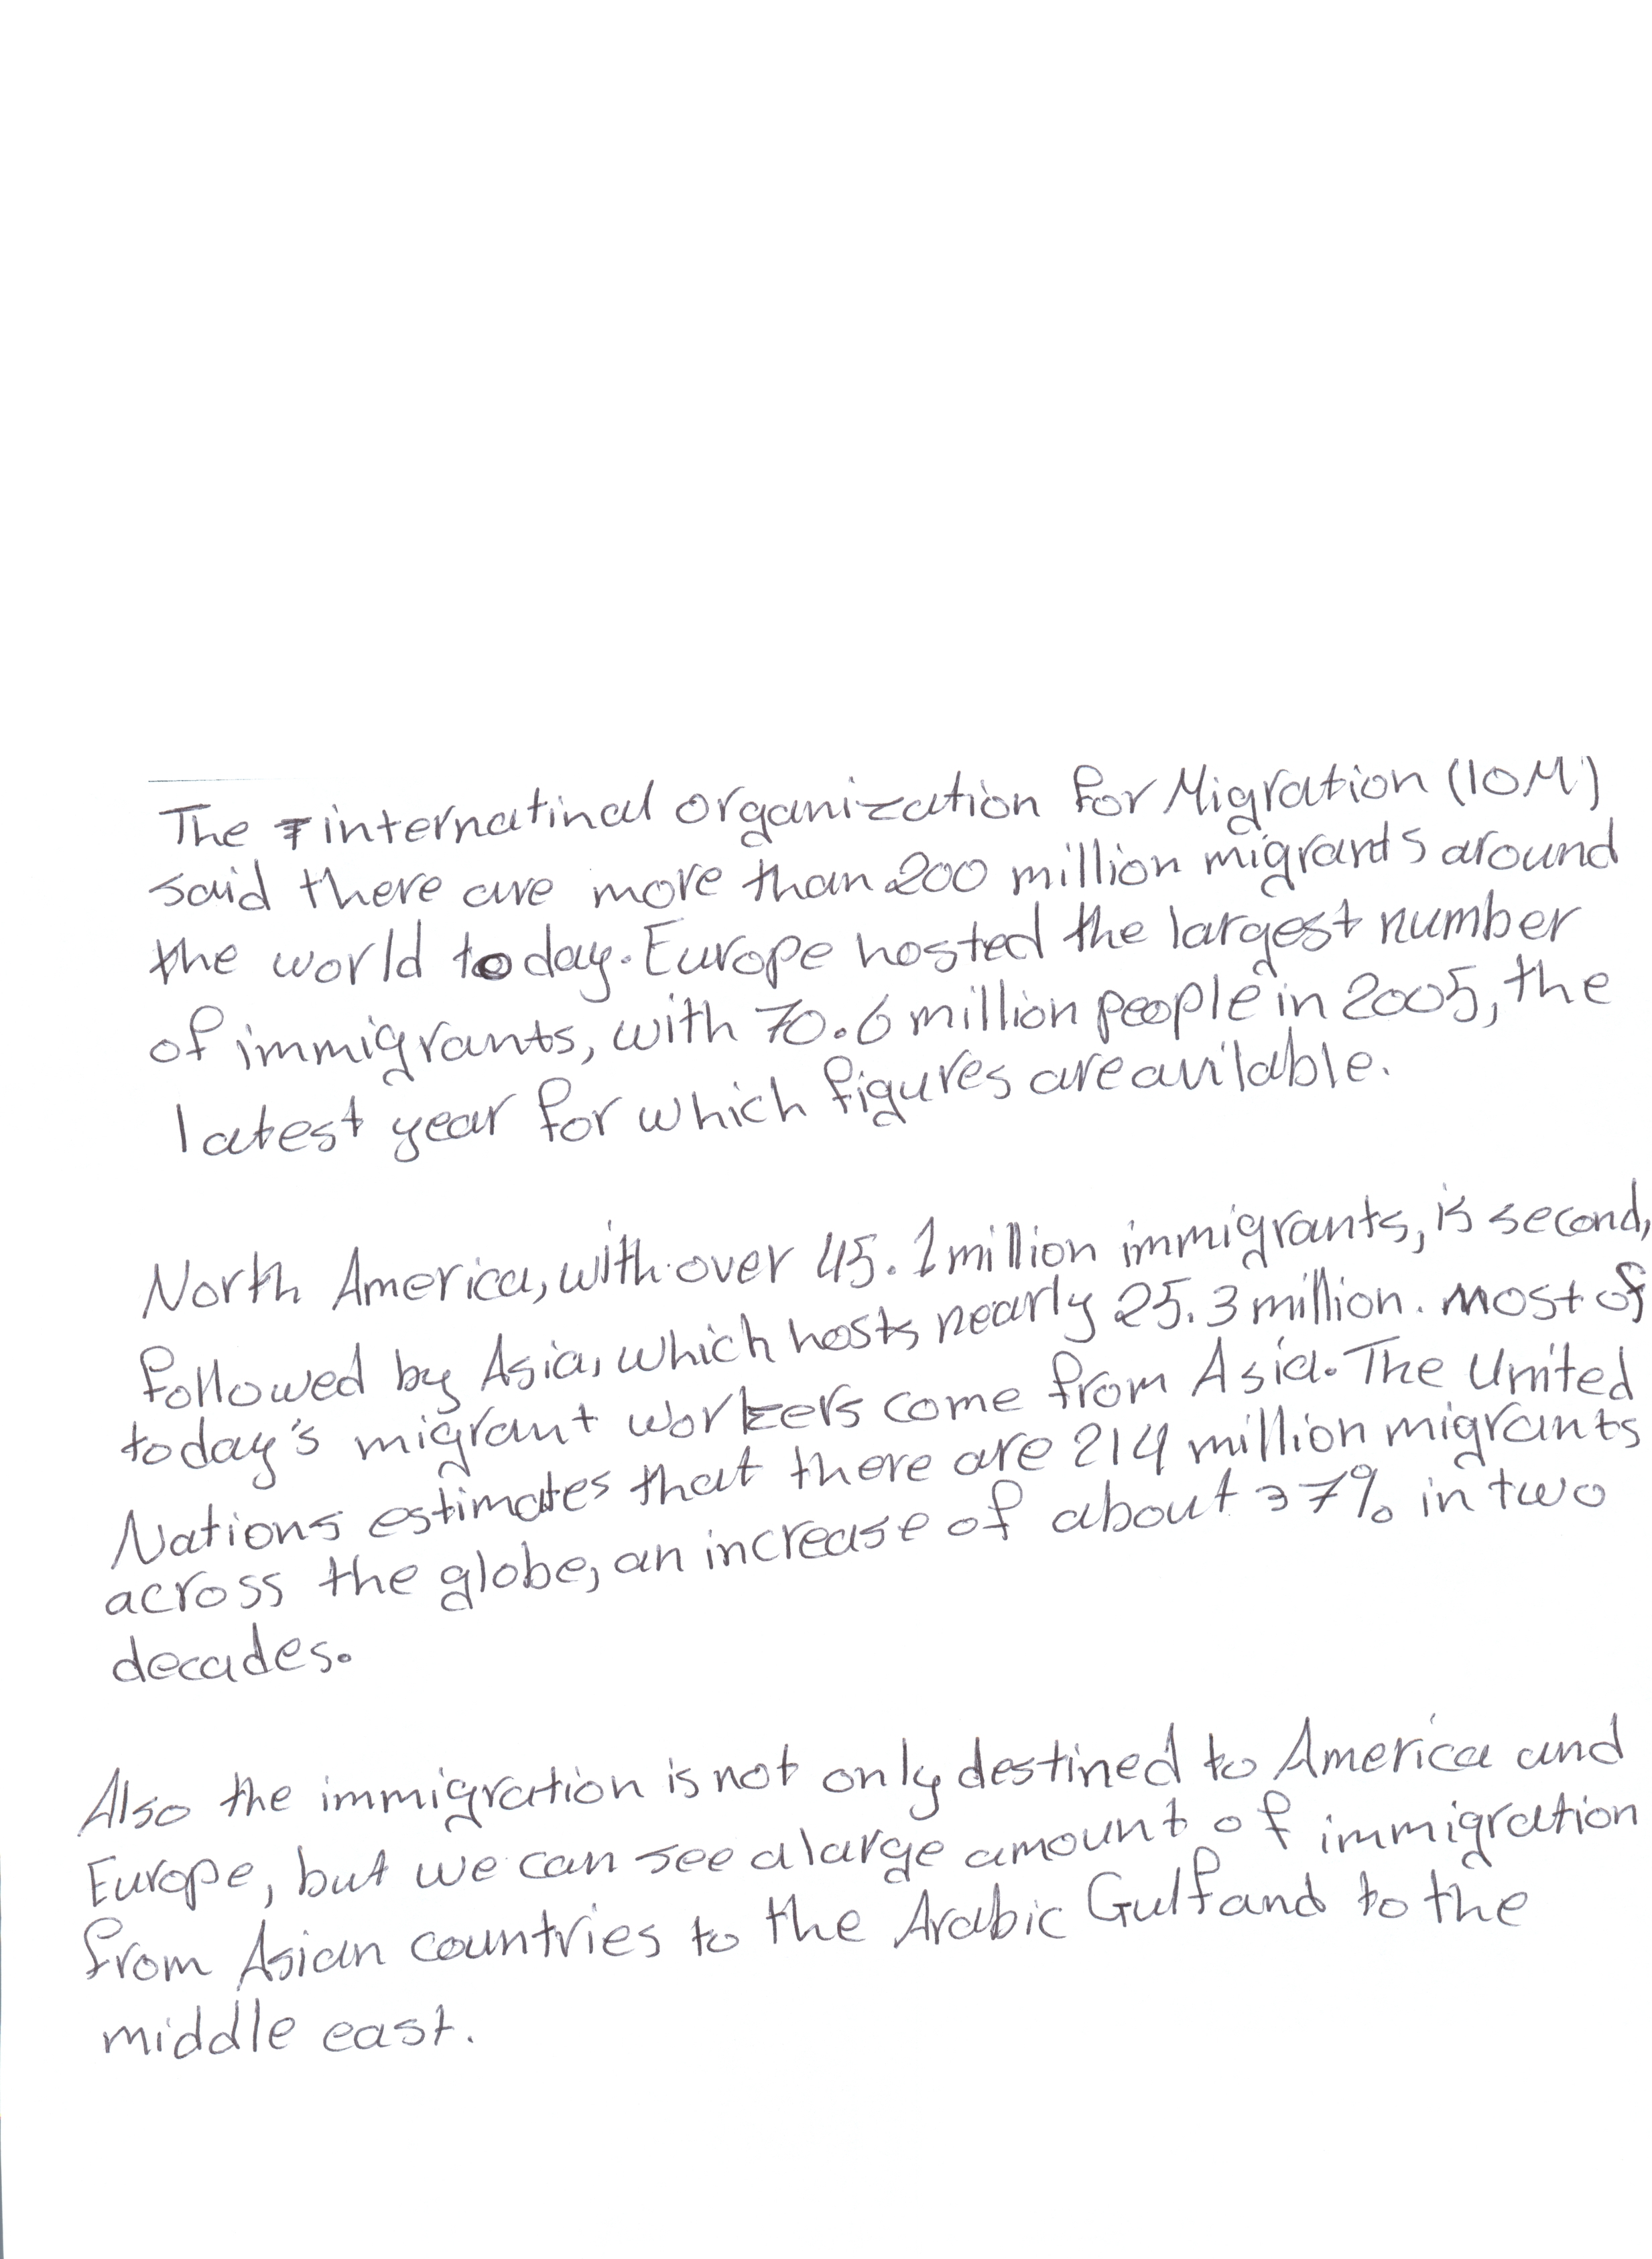 The internatinal organization for Migration (IOM)
said there are more than 200 million migrants around
the world today. Europe hosted the largest number
of immigrants, with 70.6 million people in 2005, the
latest year for which figures are avilable.
North America, with over 45.1 million immigrants, is second,
followed by Asia, which hosts nearly 25.3 million. Most of
today's migrant workers come from Asia. The United
Nations estimates that there are 214 million migrants
across the globe, an increase of about 37% in two
decades.
Also the immigration is not only destined to America and
Europe, but we can see a large amount of immigration
from Asian countries to the Arabic Gulf and to the
middle east.